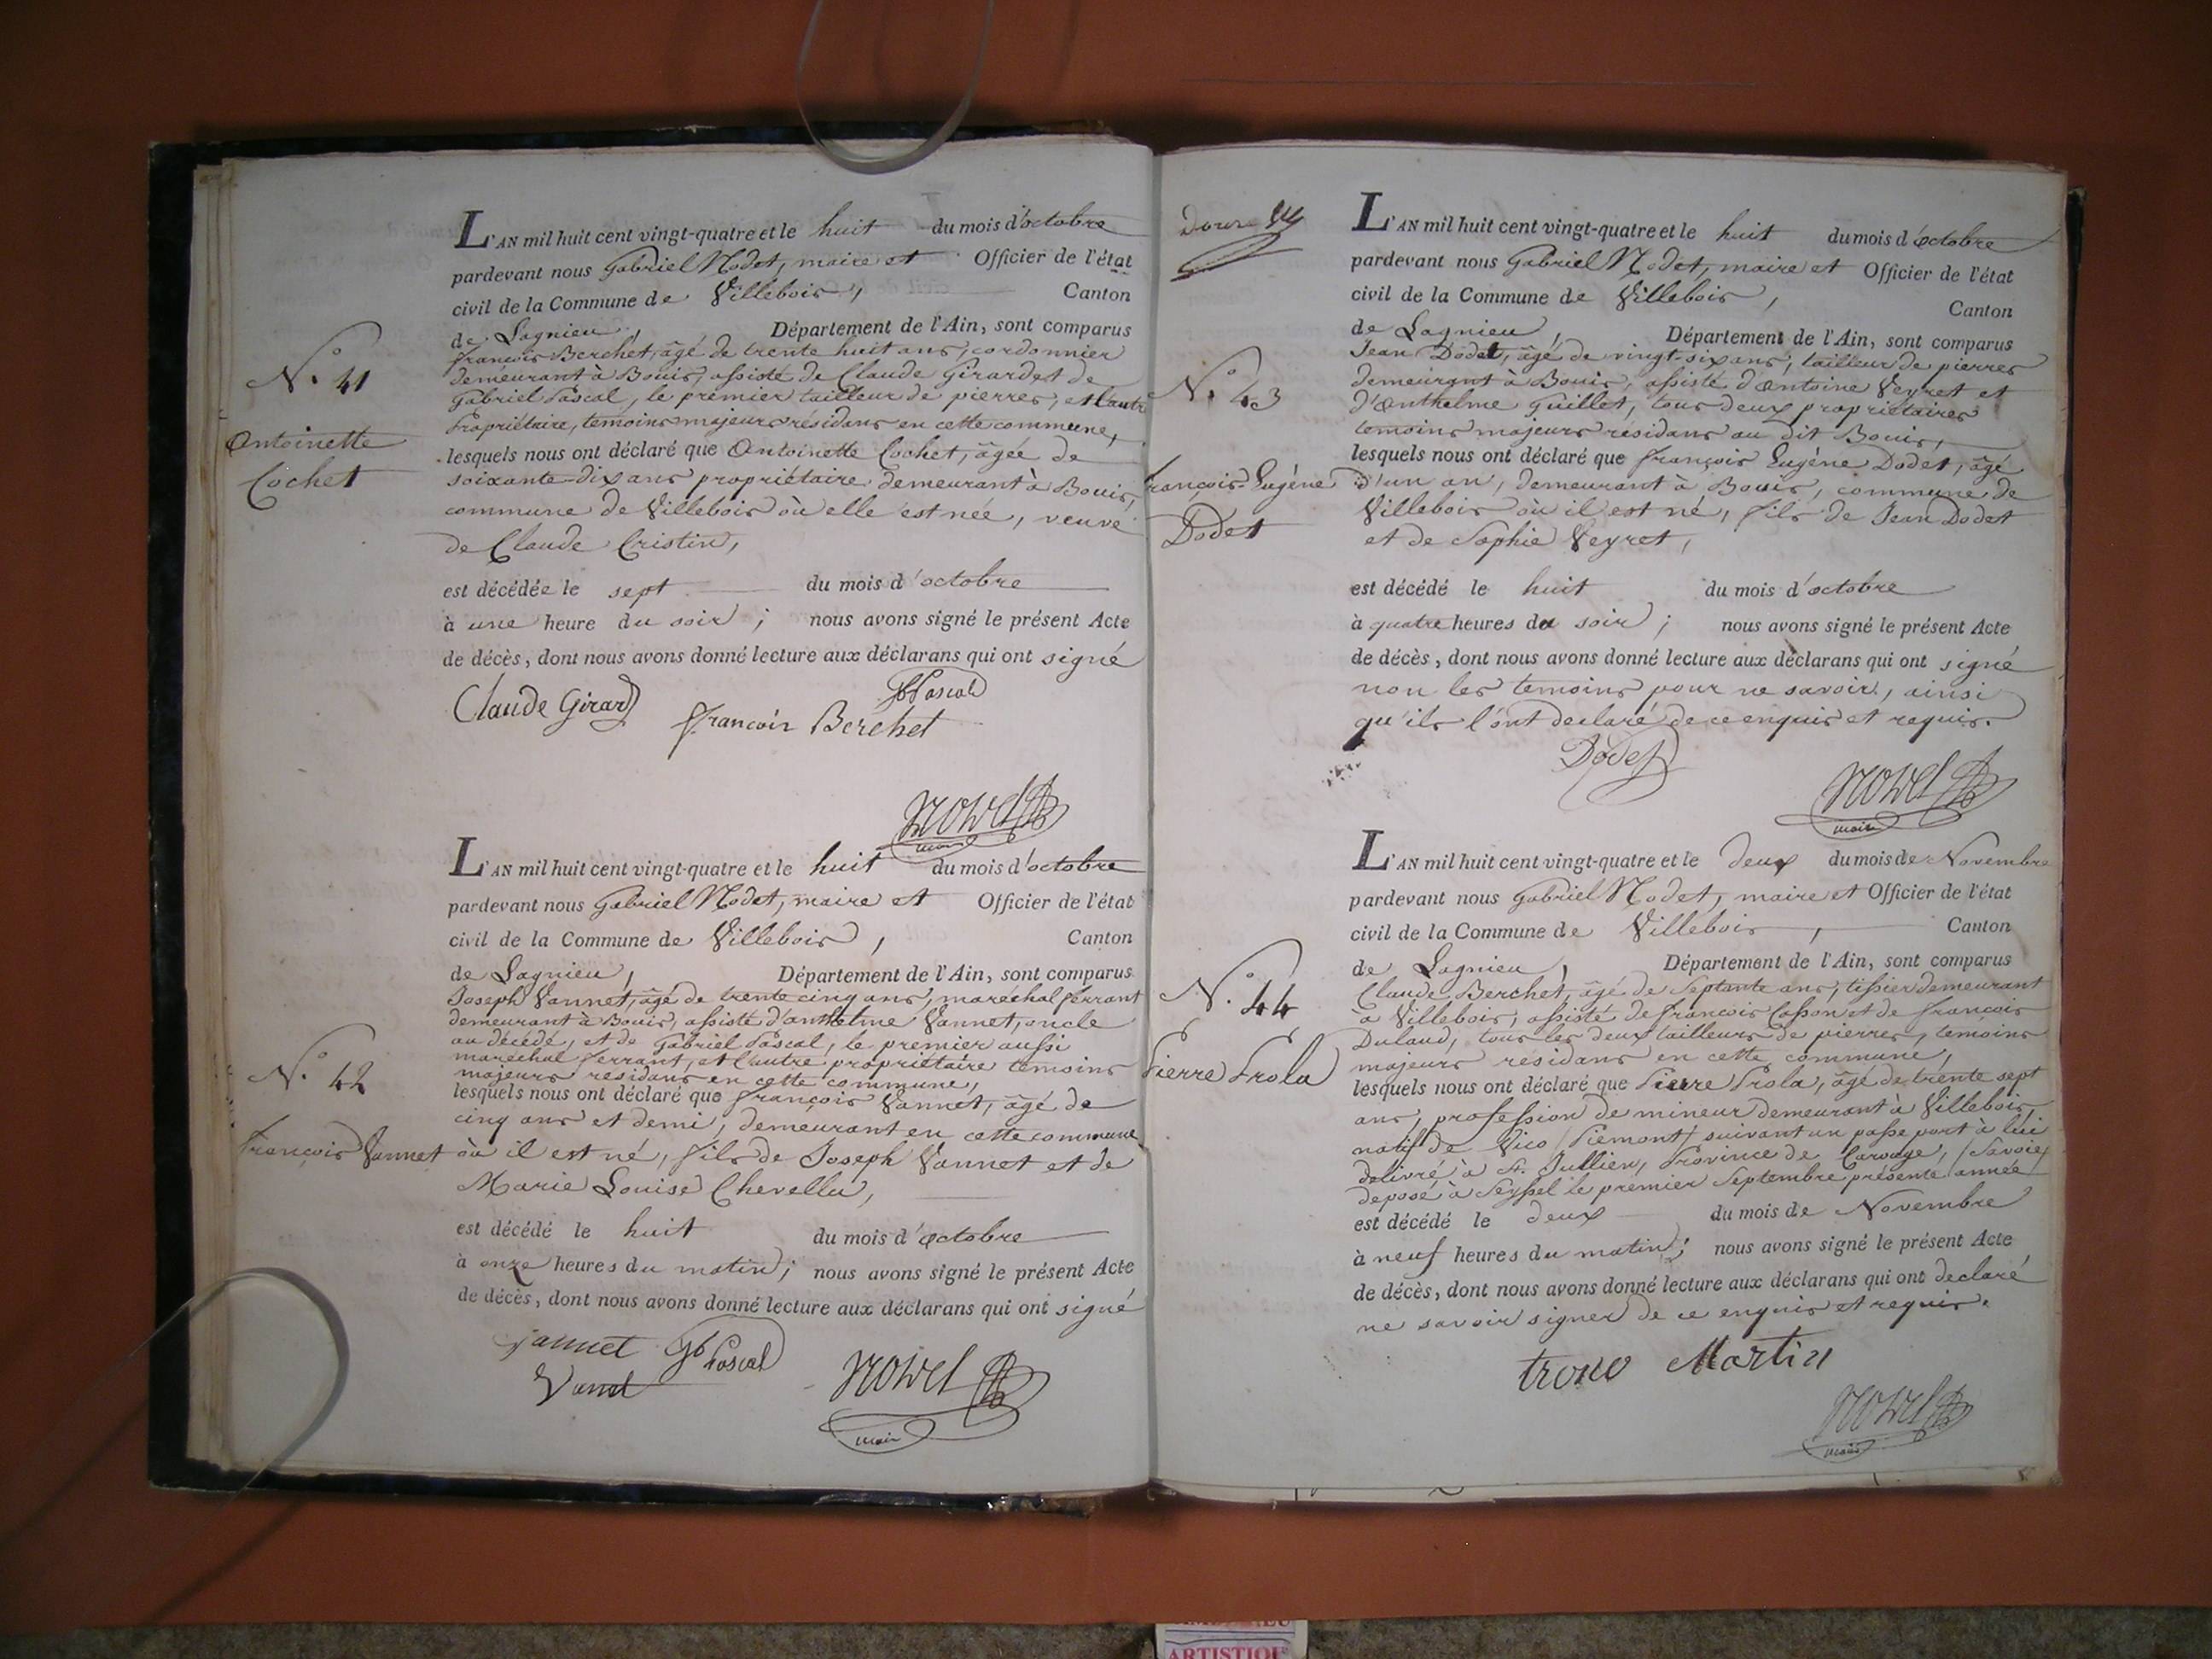 L'AN mil huit cent vingt-quatre et le huit du mois d'octobre
pardevant nous Gabriel Nodet, maire et Officier de l'état
civil de la Commune de Villebois, Canton
de Lagnieu, Département de l'Ain, sont comparus
françois Berchet, âgé de trente huit ans, cordonnier
demeurant à Bouis, assisté de Claude Girardet de
Gabriel Pascal, le premier tailleur de pierres, et l'autre
Propriétaire, temoins majeurs résidans en cette commune,
lesquels nous ont déclaré que Antoinette Cochet, âgée de
soixante-dix ans propriétaire demeurant à Bouis,
commune de Villebois où elle est née, veuve
de Claude Cristin,
est décédée le sept du mois d'octobre
à une heure du soir ; nous avons signé le présent Acte
de décès, dont nous avons donné lecture aux déclarans qui ont signé
N.o 41
Antoinette
Cochet
Claude Girard
Gb Pascal
françois Berchet
Nodet
maire
L'AN mil huit cent vingt-quatre et le huit du mois d'octobre
pardevant nous Gabriel Nodet, maire et Officier de l'état
civil de la Commune de Villebois, Canton
de Lagnieu, Département de l'Ain, sont comparus
Joseph Vannet, âgé de trente cinq ans, maréchal ferrant
demeurant à Bouis, assisté d'anthelme Vannet, oncle
au décédé, et de Gabriel Pascal, le premier aussi
maréchal ferrant, et l'autre propriétaire temoins
majeurs residans en cette commune,
lesquels nous ont déclaré que françois Vannet, âgé de
cinq ans et demi, demeurant en cette commune
où il est né, fils de Joseph Vannet et de
Marie Louise Chevellu,
est décédé le huit du mois d'octobre
à onze heures du matin ; nous avons signé le présent Acte
de décès, dont nous avons donné lecture aux déclarans qui ont signé
N.o 42
françois Vannet
Vannet Gb Pascal
Nodet
maire
L'AN mil huit cent vingt-quatre et le huit du mois d'octobre
pardevant nous Gabriel Nodet, maire et Officier de l'état
civil de la Commune de Villebois, Canton
de Lagnieu, Département de l'Ain, sont comparus
Jean Dodet, âgé de vingt-six ans, tailleur de pierres
demeurant à Bouis, assisté d'antoine Veyret et
d'anthelme Guillet, tous deux propriétaires
temoins majeurs résidans au dit Bouis,
lesquels nous ont déclaré que françois Eugène Dodet, âgé
d'un an, demeurant à Bouis, commune de
Villebois où il est né, fils de Jean Dodet
et de Sophie Veyret,
est décédé le huit du mois d'octobre
à quatre heures du soir ; nous avons signé le présent Acte
de décès, dont nous avons donné lecture aux déclarans qui ont signé
non les temoins pour ne savoir, ainsi
qu'ils l'ont declaré de ce enquis et requis.
N.o 43
françois-Eugène
Dodet
Dodet
Nodet
maire
L'AN mil huit cent vingt-quatre et le deux du mois de Novembre
pardevant nous Gabriel Nodet, maire et Officier de l'état
civil de la Commune de Villebois, Canton
de Lagnieu, Département de l'Ain, sont comparus
Claude Berchet, âgé de septante ans, tissier demeurant
à Villebois, assisté de françois Casson et de françois
Dulaud, tous les deux tailleurs de pierres, temoins
majeurs résidans en cette commune,
lesquels nous ont déclaré que Pierre Prola, âgé de trente sept
ans, profession de mineur demeurant à Villebois,
natif de Vico / Piemont / suivant un passe port à lui
delivré à St. Jullien, Province de Carouge, / Savoie /
deposé à Seyssel le premier Septembre présente année
est décédé le deux du mois de Novembre
à neuf heures du matin ; nous avons signé le présent Acte
de décès, dont nous avons donné lecture aux déclarans qui ont declaré
ne savoir signer de ce enquis et requis.
N.o 44
Pierre Prola
trono Martin
Nodet
maire
ARTISTIQU